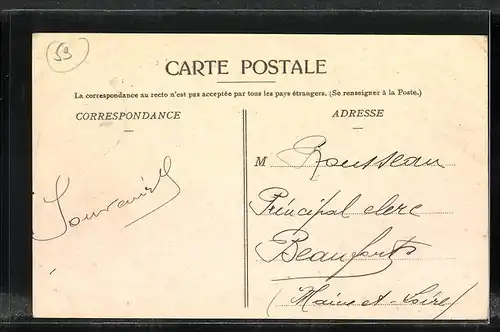 59
CARTE POSTALE
La correspondance au recto n'est pas acceptée par tous les pays étrangers. (Se renseigner à la Poste.)
CORRESPONDANCE
ADRESSE
M Rousseau
Souvenirs
Principal clerc
Beaufort
(Maine et Loire)